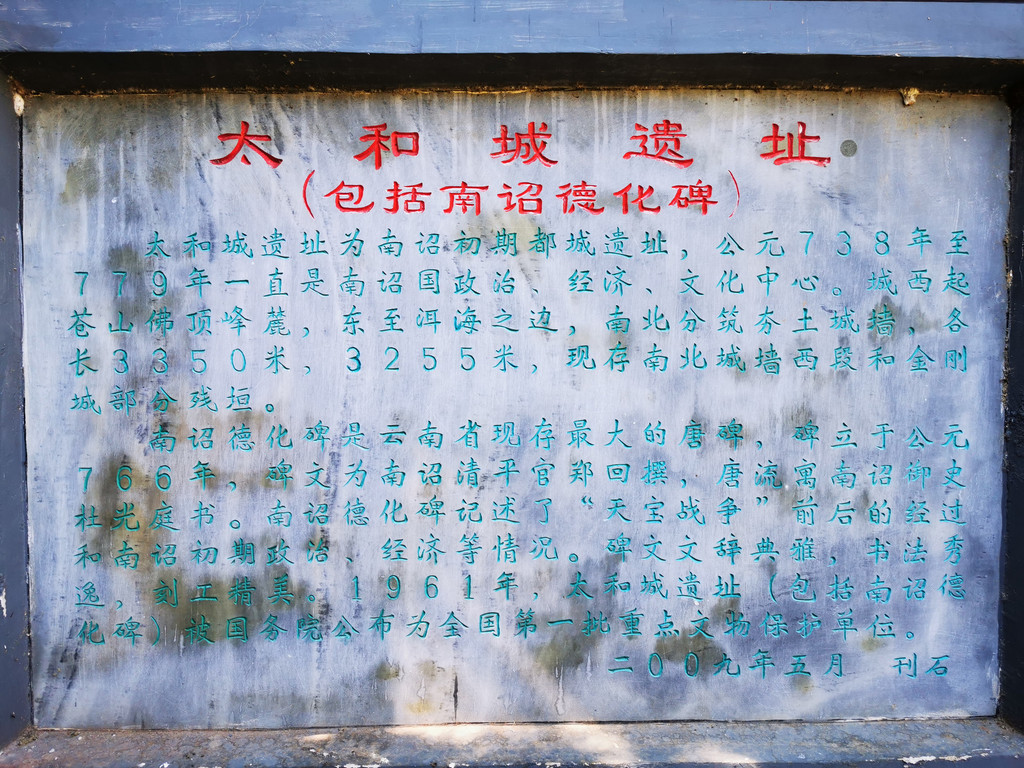 太和城遗址
(包括南诏德化碑)
太和城遗址为南诏初期都城遗址，公元738年至
779年一直是南诏国政治、经济、文化中心。城西起
苍山佛顶峰麓，东至洱海之边，南北分筑夯土城墙，各
长3350米，3255米，现存南北城墙西段和金刚
城部分残垣。
南诏德化碑是云南省现存最大的唐碑，碑立于公元
766年，碑文为南诏清平官郑回撰，唐流寓南诏御史
杜光庭书。南诏德化碑记述了“天宝战争”前后的经过
和南诏初期政治、经济等情况。碑文文辞典雅，书法秀
逸，刻工精美。1961年，太和城遗址(包括南诏德
化碑)被国务院公布为全国第一批重点文物保护单位。
二00九年五月 刊石